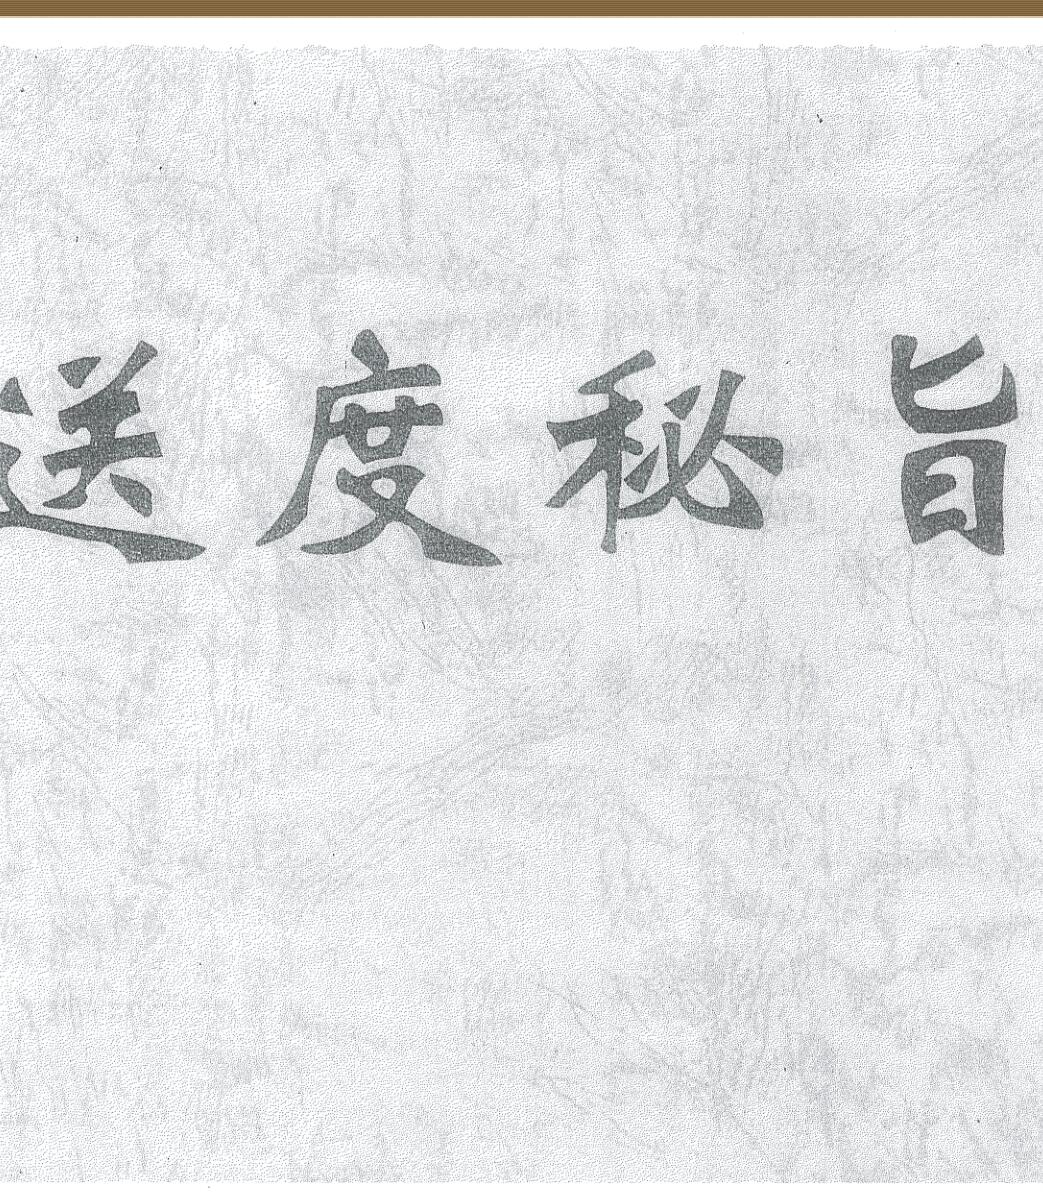 送度秘旨